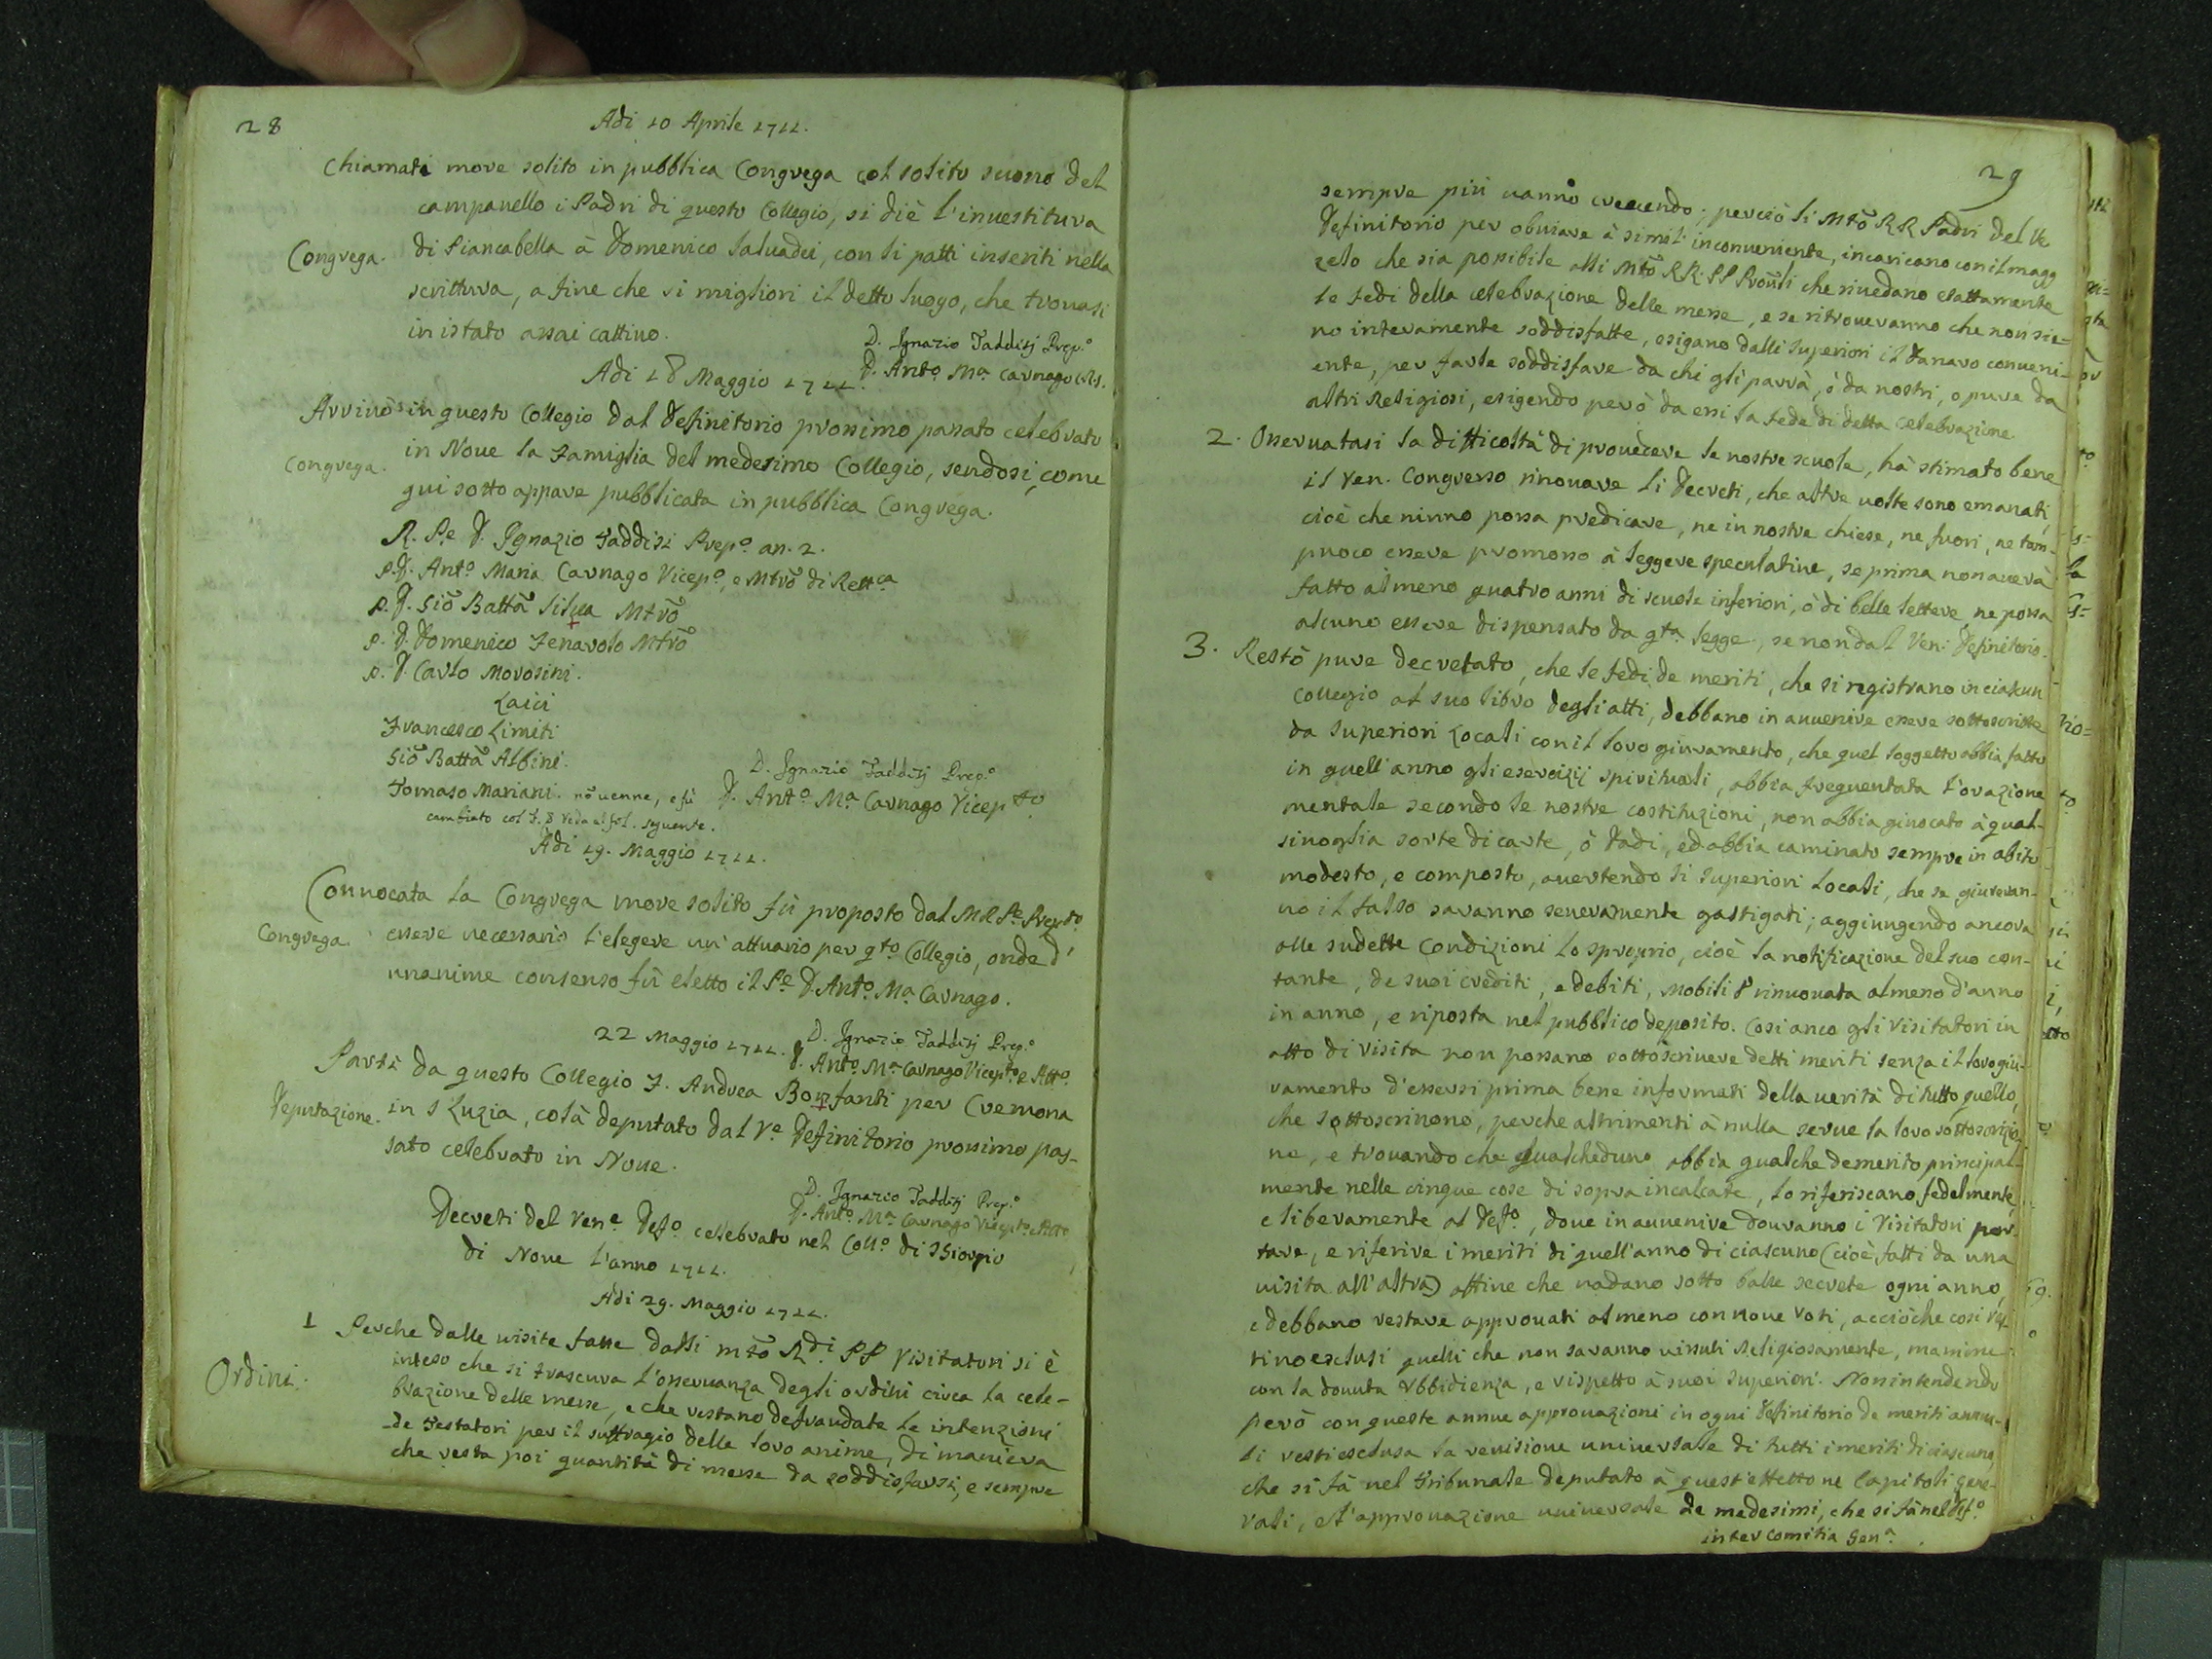 28
Adi 10 Aprile 1711.
Chiamati more solito in pubblica Congrega col solito suono del
campanello i Padri di questo Collegio, si diè l'inuestitura
Congrega. di Piancabella à Domenico Saluadei, con li patti inseriti nella
scrittura, a fine che si migliori il detto luogo, che trouasi
in istato assai cattiuo.
D. Ignazio Taddisj Prep.º
D. Antº Mª Carnago C.R.S.
Adi 18 Maggio 1711.
Arriuò in questo Collegio dal Definitorio prossimo passato celebrato
in Noue la Famiglia del medesimo Collegio, sendosi, come
Congrega. qui sotto appare pubblicata in pubblica Congrega.
R. Pe D. Ignazio Taddisi Prepº an. 2.
P. D. Antº Maria Carnago Vicepº, e Mtrõ di Rettca
P. D. Giõ Battã Silua Mtrõ
P. D. Domenico Fenarolo Mtrõ
P. D. Carlo Morosini.
Laici
Francesco Limiti
Giõ Battã Albini.
Tomaso Mariani. nõ uenne, e fù
cambiato col F. 8 Veda al fol. seguente.
D. Ignazio Taddisj Prep.º
D. Antº Mª Carnago Vicepto
Adi 19. Maggio 1711.
Conuocata la Congrega more solito fù proposto dal MR Pe Prepto
Congrega. essere necessario l'elegere un' attuario per qto Collegio, onde d'
unanime consenso fù eletto il Pe D. Antº Mª Carnago.
22 Maggio 1711.
D. Ignazio Taddisj Prep.º
D. Antº Mª Carnago Vicepto e Attº
Partì da questo Collegio F. Andrea Bonfanti per Cremona
Deputazione. in S Luzia, colà deputato dal Ve Definitorio prossimo pas-
sato celebrato in Noue.
D. Ignazio Taddisj Prep.º
D. Antº Mª Carnago Vicepto e Atto
Decreti del Vene Defº celebrato nel Collº di S Giorgio
di Noue l'anno 1711.
Adi 29. Maggio 1711.
1 Perche dalle uisite fatte dalli mtõ Rdi PP Visitatori si è
Ordini. inteso che si trascura l'osseruanza degli ordini circa la cele-
brazione delle messe, e che restano defraudate le intenzioni
de Testatori per il suffragio delle loro anime, di maniera
che resta poi quantità di messe da soddisfarsi, e sempre
29
sempre più uanno crescendo; perciò li Mtõ RR Padri del Ve
Definitorio per obuiare à simili inconueniente, incaricano con il magg
zelo che sia possibile alli Mtõ RR. PP Proũli che riuedano esattamente
le fedi della celebrazione delle messe, e se ritroueranno che non sie-
no interamente soddisfatte, esigano dalli Superiori il danaro conueni-
ente, per farle soddisfare da chi gli parrà, ò da nostri, o pure da
altri Religiosi, esigendo però da essi la fede di detta celebrazione.
2. Osseruatasi la difficoltà di prouedere le nostre scuole, hà stimato bene
il Ven. Congresso rinouare li Decreti, che altre uolte sono emanati,
cioè che niuno possa predicare, ne in nostre chiese, ne fuori, ne tam-
puoco essere promosso à leggere speculatiue, se prima non auerà
fatto almeno quatro anni di scuole inferiori, ò di belle lettere, ne possa
alcuno essere dispensato da qta legge, se non dal Ven: Definitorio.
3. Restò pure decretato, che le fedi de meriti, che si registrano in ciascun
Collegio al suo libro degli atti, debbano in auuenire essere sottoscritte
da Superiori Locali con il loro giuramento, che quel soggetto abbia fatto
in quell'anno gli esercizij spirituali, abbia frequentata l'orazione
mentale secondo le nostre costituzioni, non abbia giuocato à qual-
siuoglia sorte di carte, ò dadi, ed abbia caminato sempre in abito
modesto, e composto, auertendo li superiori locali, che se giureran-
no il falso saranno seueramente gastigati; aggiungendo ancora
alle sudette Condizioni lo sproprio, cioè la notificazione del suo con-
tante, de suoi crediti, e debiti, mobili & rinuouata almeno d'anno
in anno, e riposta nel pubblico deposito. Cosi anco gli Visitatori in
atto di visita non possano sottoscriuere detti meriti senza il loro giu-
ramento d'essersi prima bene informati della uerità di tutto quello,
che sottoscriuono, perche altrimenti à nulla serue la loro sottoscrizio-
ne, e trouando che qualcheduno abbia qualche demerito principal-
mente nelle cinque cose di sopra incalcate, lo riferiscano fedelmente
e liberamente al Defº, doue in auuenire dourano i Visitatori por-
tare, e riferire i meriti di quell'anno di ciascuno (cioè fatti da una
uisita all'altra) affine che uadano sotto balle secrete ogni anno,
e debbano restare approuati almeno con noue voti, acciòche cosi res
tino esclusi quelli che non saranno uissuti Religiosamente, massime
con la douuta Ubbidienza, e rispetto à suoi Superiori. Non intendendo
però con queste annue approuazioni in ogni Definitorio de meriti annua-
li resti esclusa la reuisione uniuersale di tutti i meriti di ciascuno,
che si fà nel Tribunale deputato à quest'effetto ne Capitoli gene-
rali, e l'approuazione uniuersale de medesimi, che si fà nel Defº
inter Comitia Genª.